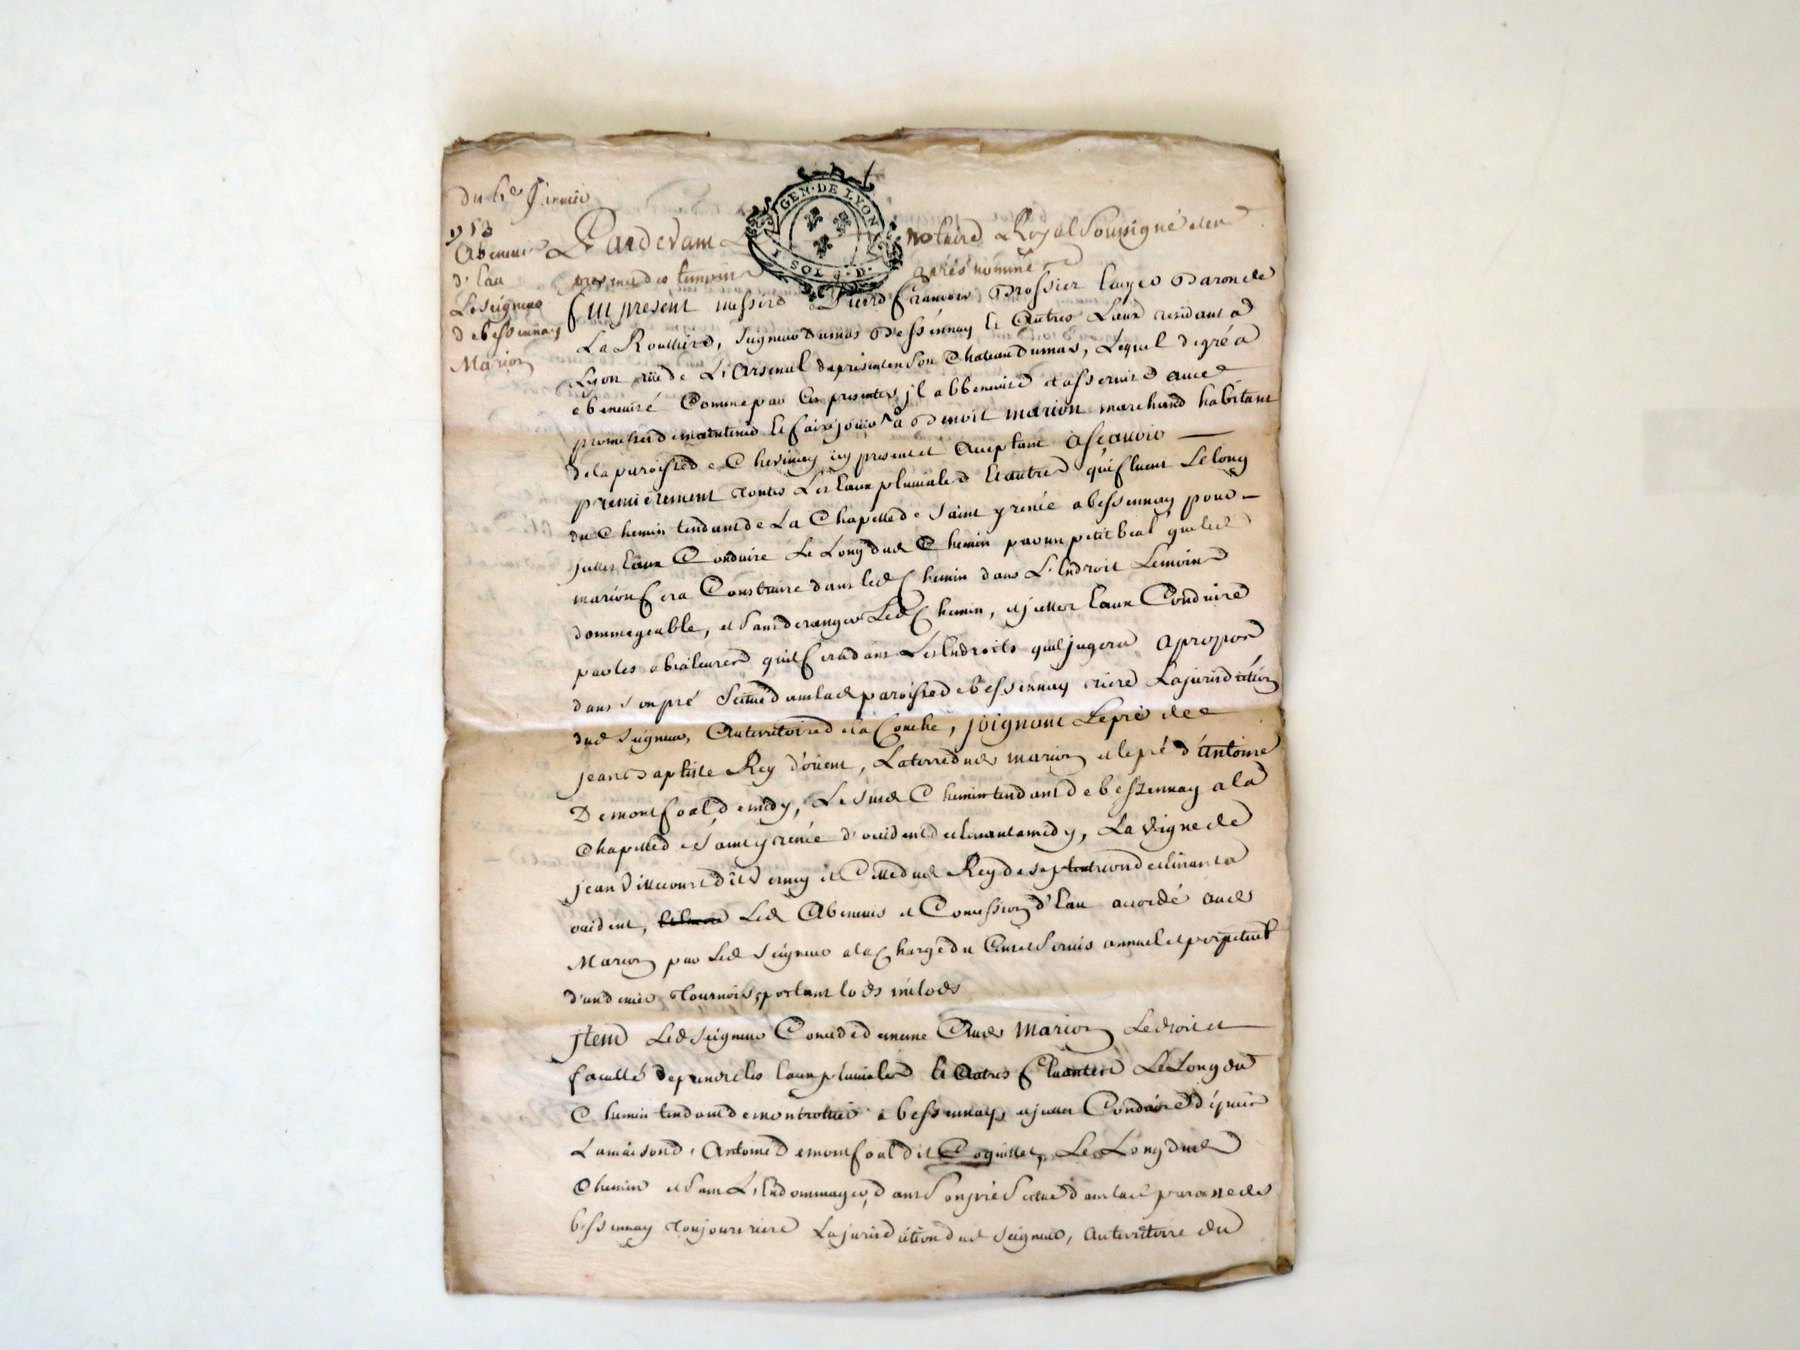 Du 6e Janvier
1753
Abenevis
d'Eau
Le seigneur
de bessennay
Marion
GEN. DE LYON
1 SOL 4. D.
Pardevant Le notaire Royal soussigné et en
presence des temoins après nommé
fut present messire Pierre francois Brossier Ecuyer Baron de
La Roulliere, seigneur dumas Bessennay et autres Lieux residant a
Lyon rüe de L'Arsenal depresent en son Chateau dumas, Lequel de gré a
abenevisé comme par Ces presentes il abbenevise et asservise avec
promesse de maintenir et faire jouir a S. Benoit marion marchand habitant
de la paroisse de Chevinay icy present et acceptant ascavoir
premierement toutes Les Eaux pluviales et autres qui fluent Le long
du Chemin tendant de La Chapelle de saint yrenée a bessennay pour
icelles Eaux Conduire Le Long dud. Chemin par un petit béal que led.
marion fera Construire dans led. Chemin dans L'Endroit Le moins
dommageable, et sans deranger Led. Chemin, et icelles Eaux Conduire
par les abialeures qu'il fera dans Les Endroits qu'il jugera apropos
dans son pré situé dans lad. paroisse de bessennay riere La jurisdiction
dud. seigneur, au territoire de la Combe, joignant Le pré de
jean Baptiste Rey d'orient, La terre dud. marion et le pré d'antoine
Demontfoal de midy, Le susd. Chemin tendant de bessennay a la
Chapelle de saint yrenée d'occident declinant a midy, La vigne de
jean Villecourt dit Vernay et Celle dud. Rey de septentrion declinant a
occident, Led. Abenevis et Concession d'Eau accordé aud.
Marion par Led. seigneur a la Charge du Cens et servis annuel et perpetuel
d'un denier tournois, portant lods milods
Item Led. seigneur Concede de meme aud. Marion Le droit et
faculté de prendre les Eaux pluviales et autres fluantes Le Long du
Chemin tendant de montrottier a bessennay, et icelles Conduire depuis
La maison d'Antoine Demontfoal dit Coquillet, Le Long dud.
Chemin et sans L'Endommager, dans son pré situé dans lad. paroisse de
bessennay toujours riere La jurisdiction dud. seigneur, au territoire du